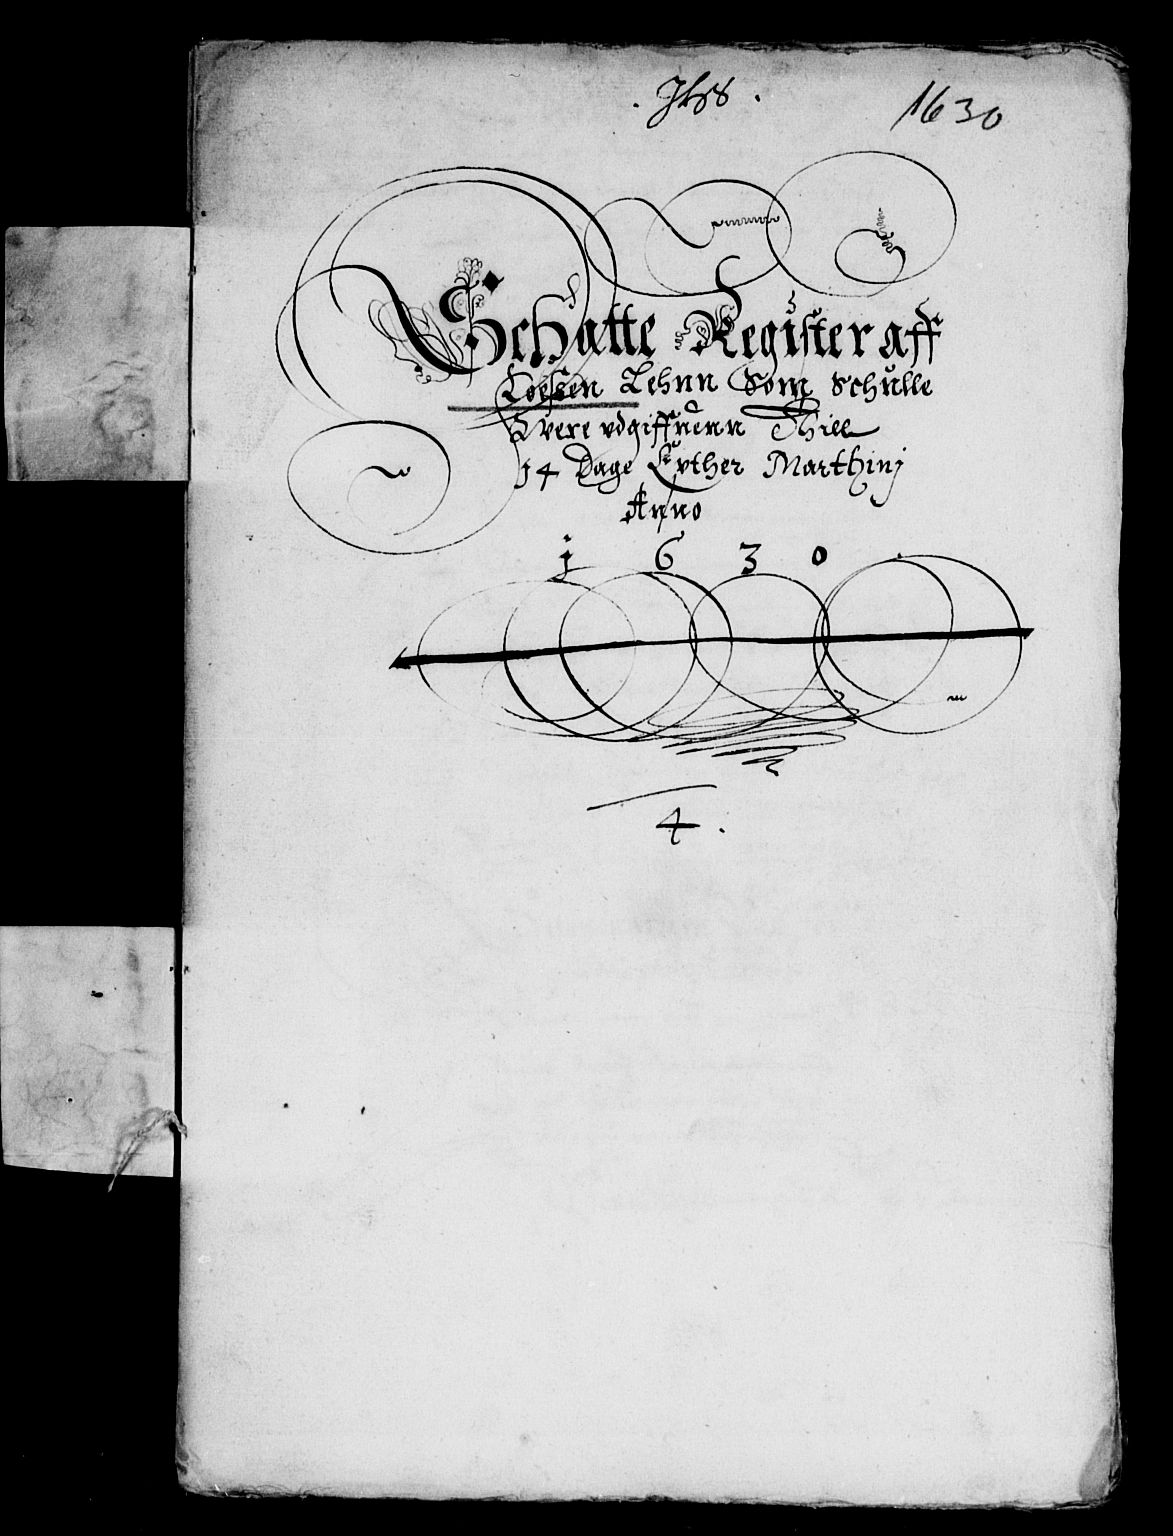 . Jhs .
1630
Schatte Register aff
Loessen Lehnn Som schulle
Vere vdgiffuenn Thill
14 Dage Epther Marthinj
Anno
1630
4.